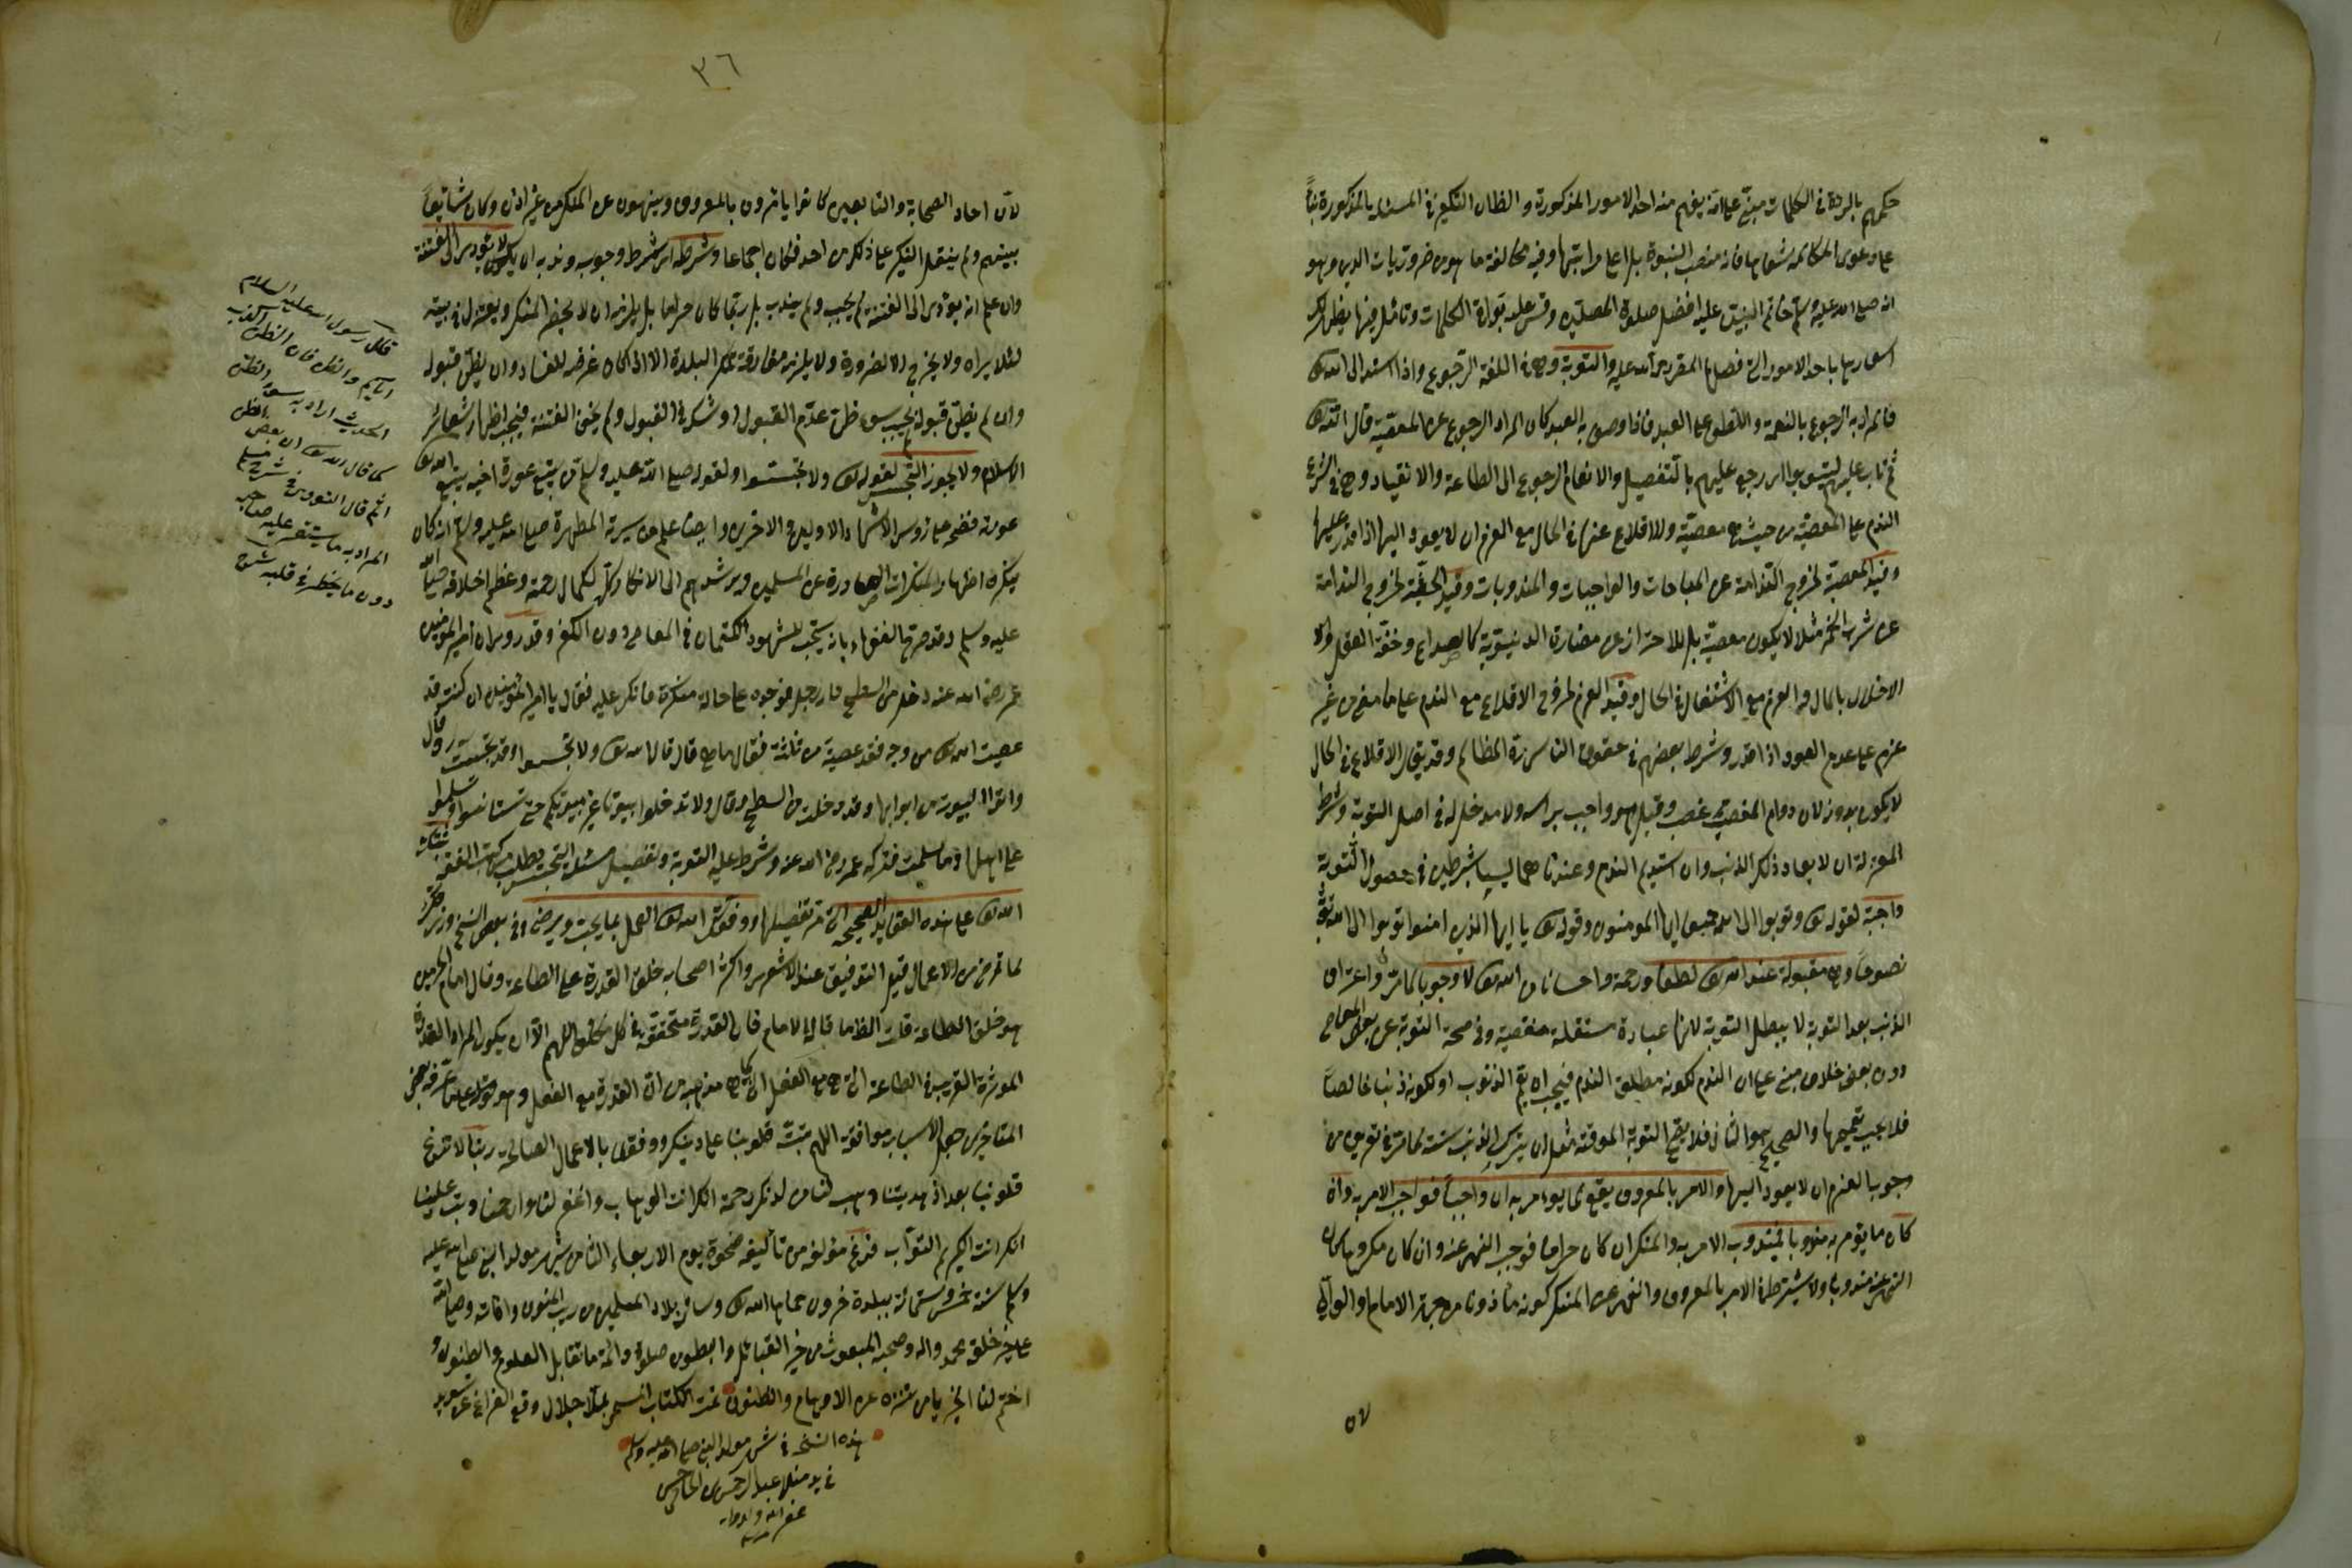 حكمهم بالردة فى الكلمات مبنى على انه يفهم منه احد الامور المذكورة والظاهر ان التكفير فى المسئلة المذكورة بناء
على دعوى المكالمة شفاها فانه منصب النبوة بل اعلى مراتبها وفيه مخالفة ما هو من ضروريات الدين وهو
انه صلى الله عليه وسلم خاتم النبيين عليه افضل صلوة المصلين وقس عليه بواقى الكلمات وتأمل فيها يظهر لك
اشعارها باحد الامور التى فصلها المقر رحمة الله عليه والتوبة وهى فى اللغة الرجوع واذا اسند الى الله تع
فالمراد به الرجوع بالنعمة واللطف على العبد فاذا وصف به العبد كان المراد الرجوع عن المعصية قال الله تع
ثم تاب عليهم ليتوبوا اى رجع عليهم بالتفضيل والانعام الرجوع الى الطاعة والانقياد وهى فى الشرع
الندم على المعصية من حيث هى معصية والاقلاع عنها فى الحال مع العزم ان لا يعود اليها اذا قدر عليها
وقيد المعصية لخروج الندامة عن المباحات والواجبات والمندوبات وقيد الحيثية لخروج الندامة
عن شرب الخمر مثلا لا يكون معصية بل للاحتراز عن مضاره الدنيوية كالصداع وخفة العقل او
الاخلال بالمال والعزم مع الاشتغال فى الحال وقيد العزم لخروج الاقلاع مع الندم على ما مضى من غير
عزم على عدم العود اذا قدر وشرط بعضهم فى حقوق الناس رد المظالم وقد يقال الاقلاع فى الحال
لا يكون بدونه لان دوام المغصوب غصب وقيل هو واجب براسه ولا مدخل له فى اصل التوبة وشرط
المعتزلة ان لا يعاود ذلك الذنب وان استديم الندم وعندنا هما ليسا بشرطين فى حصول التوبة
واجبة لقوله تع وتوبوا الى الله جميعا ايها المومنون وقوله تع يا ايها الذين امنوا توبوا الى الله توبة
نصوحا وهى مقبولة عند الله تع لطفا ورحمة واحسانا من الله تع لا وجوبا كما مر واعتراف
الذنب بعد التوبة لا يبطل التوبة لانها عبادة مستقلة منقضية وفى صحة التوبة عن بعض المعاصى
دون بعض خلاف مبنى على ان الندم لكونه مطلق الندم فيجب ان يعم الذنوب او لكونه ذنبا خالصا
فلا يجب تعميمها والصحيح هو الثانى فلا يصح التوبة الموقتة مثل ان يترك الذنب سنة لما مر فى تعريف من
وجوب العزم ان لا يعود اليها والامر بالمعروف يقع لما يومر به ان واجبا فواجب الامر به وان
كان ما يؤمر به مندوبا فمندوب الامر به والمنكر ان كان حراما فوجب النهى عنه وان كان مكروها كان
النهى عنه مندوبا ولا يشترط فى الامر بالمعروف والنهى عن المنكر كونه مأذونا من جهة الامام والوالى
٥٧
٣٦
لان احاد الصحابة والتابعين كانوا يأمرون بالمعروف وينهون عن المنكر من غير اذن وكان شايعا
بينهم ولم ينقل النكير على ذلك من احد فكان اجماعا وشرطه اى شرط وجوبه وندبه ان لا يكون يؤدى الى الفتنة
وان علم انه يؤدى الى الفتنة لم يجب ولم يندب بل ربما كان حراما بل يلزمه ان لا يحضر المنكر ويعتزل فى بيته
لئلا يراه ولا يخرج الا لضرورة ولا يلزمه مفارقة تلك البلدة الا اذا كان عرضه للفساد وان يظن قبوله
وان لم يظن قبوله لم يجب سواء ظن عدم القبول او شك فى القبول ولم يخف الفتنة فيجب اظهار شعائر
الاسلام ولا يجوز التجسس لقوله تع ولا تجسسوا ولقوله صلى الله عليه وسلم من يتبع عورة اخيه يتبع الله تع
عورته فضحه على رؤس الاشهاد الاولين والاخرين وايضا علم من سيرته المطهرة صلى الله عليه وسلم انه كان
يكره اظهار المنكرات الصادرة عن المسلمين ويرشدهم الى الانكار لكمال رحمته وعظم اخلاقه صلى الله
عليه وسلم وقد صرح الفقهاء بانه يستحب للشهود الكتمان فى المعاصى دون الكفر وقد روى ان امير المؤمنين
عمر رضى الله عنه دخل من السطح دار رجل فوجده على حالة منكرة فانكر عليه فقال يا امير المؤمنين ان كنت قد
عصيت الله تع من وجه فقد عصيته من ثلثة فقال ما هى قال قال الله تع ولا تجسسوا وقد تجسست وقال
واتوا البيوت من ابوابها وقد دخلت من السطح وقال ولا تدخلوا بيوتا غير بيوتكم حتى تستأنسوا وتسلموا
على اهلها وما سلمت فتركه عمر رضى الله عنه وشرط عليه التوبة وتفصيل مسئلة التجسس يطلب من كتب الفقه ثبتك
الله تع على هذه العقايد الصحيحة التى مر تفصيلها ووفقك الله تع العمل بما يحب ويرضى وفى بعض النسخ ورزقك
لما ترضى من الاعمال قيل التوفيق عند الاشعرى واكثر اصحابه خلق القدرة على الطاعة وقال امام الحرمين
هو خلق الطاعة قلت الظ ما قاله الامام فان القدرة متحققة فى كل مكلف اللهم الا ان يكون المراد القدرة
المؤثرة القريبة فى الطاعة التى هى مع الفعل كما هو مذهبه من ان القدرة مع الفعل وهو ما عرفه بعض
المتاخرين جعل الاسباب موافقة اللهم ثبت قلوبنا على دينك ووفقنا بالاعمال الصالحة ربنا لا تزغ
قلوبنا بعد اذ هديتنا وهب لنا من لدنك رحمة انك انت الوهاب واغفر لنا وارحمنا وتب علينا
انك انت الكريم التواب فرغ مؤلفه من تأليفه ضحوة يوم الاربعاء الثامن شهر مولد النبى صلى الله عليه
وسلم سنة خمس وتسعمائة ببلدة جرون حماها الله تع وساير بلاد المسلمين من ريب المنون وافاته وصلى الله
على خير خلقه محمد واله وصحبه المبعوث من خير القبائل والبطون صلوة دائمة ما تقابل العلوم والظنون و
اختم لنا الخير يا من تنزه عن الاوهام والظنون تمت الكتاب المسمى بملا جلال وقع الفراغ عن تسويد
هذه النسخة فى شهر مولد النبى صلى الله عليه وسلم
فى يد منلا عبد الرحمن
غفر الله ولوالديه
قال رسول الله عليه السلام
اياكم والظن فان الظن اكذب
الحديث اراد به سوء الظن
كما قال الله تع ان بعض الظن
اثم قال النووى فى شرح مسلم
المراد به ما يستقر عليه صاحبه
دون ما يخطر فى قلبه شرح